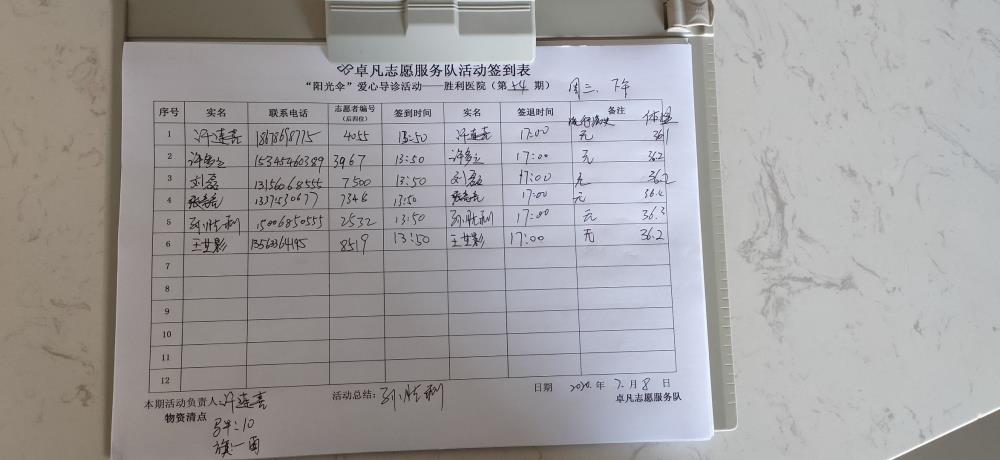 卓凡志愿服务队活动签到表
“阳光伞”爱心导诊活动——胜利医院（第 期） 周三 下午
序号 实名 联系电话 志愿者编号（后四位） 签到时间 实名 签退时间 备注 体温
1 许连喜 18678698715 4055 13:50 许连喜 17:00 无 36.1
2 15345460389 3967 13:50 17:00 无 36.2
3 刘磊 13156068555 7500 13:50 刘磊 17:00 无 36.2
4 7346 13:50 17:00 无 36.4
5 孙胜利 15006850555 2532 13:50 孙胜利 17:00 无 36.3
6 王世彩 8519 13:50 王世彩 17:00 无 36.2
7
8
9
10
11
12
本期活动负责人：许连喜 活动总结：孙胜利 日期 2020年 7月 8日
物资清点 卓凡志愿服务队
:10
旗:一面